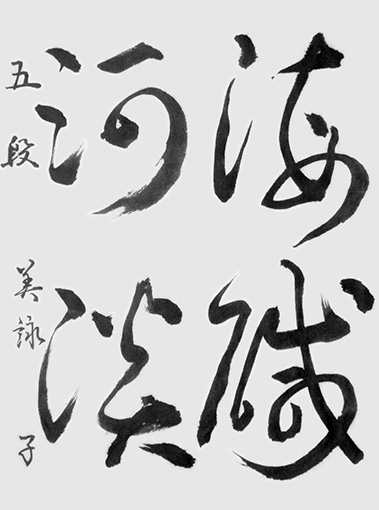 海鹹
河淡
五段 美詠子